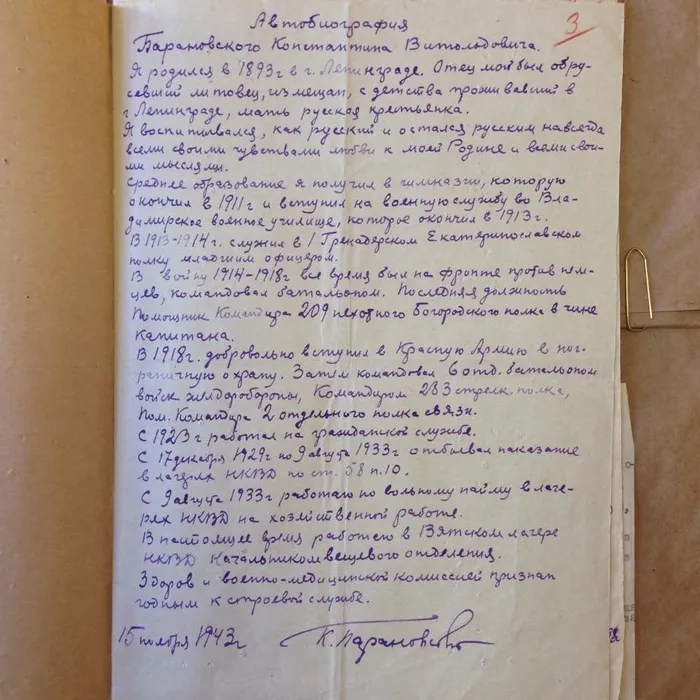 Автобиография
3
Барановского Константина Витольдовича.
Я родился в 1893г в г. Ленинграде. Отец мой был обру-
севший литовец, из мещан, с детства проживавший в
г Ленинграде, мать русская крестьянка.
Я воспитывался, как русский и остался русским навсегда
всеми своими чувствами любви к моей Родине и всеми свои-
ми мыслями.
Среднее образование я получил в гимназии, которую
окончил в 1911г и вступил на военную службу во Вла-
димирское военное училище, которое окончил в 1913г.
В 1913-1914г. служил в 1 Гренадерском Екатеринославском
полку младшим офицером.
В войну 1914-1918г все время был на фронте против нем-
цев, командовал батальоном. Последняя должность
Помощник Командира 209 пехотного Богородского полка в чине
капитана.
В 1918г. добровольно вступил в Красную Армию в пог-
раничную охрану. Затем командовал 6 отд. батальоном
войск желдоробороны, Командиром 283 стрелк. полка,
Пом. Командира 2 отдельного полка связи.
С 1923г работал на гражданской службе.
С 17 декабря 1929г по 9 августа 1933г отбывал наказание
в лагерях НКВД по ст. 58 п. 10.
С 9 августа 1933г работаю по вольному найму в лаге-
рях НКВД на хозяйственной работе.
В настоящее время работаю в Вятском лагере
НКВД Начальником вещевого отделения.
Здоров и военно-медицинской комиссией признан
годным к строевой службе.
15 ноября 1943г К. Барановский